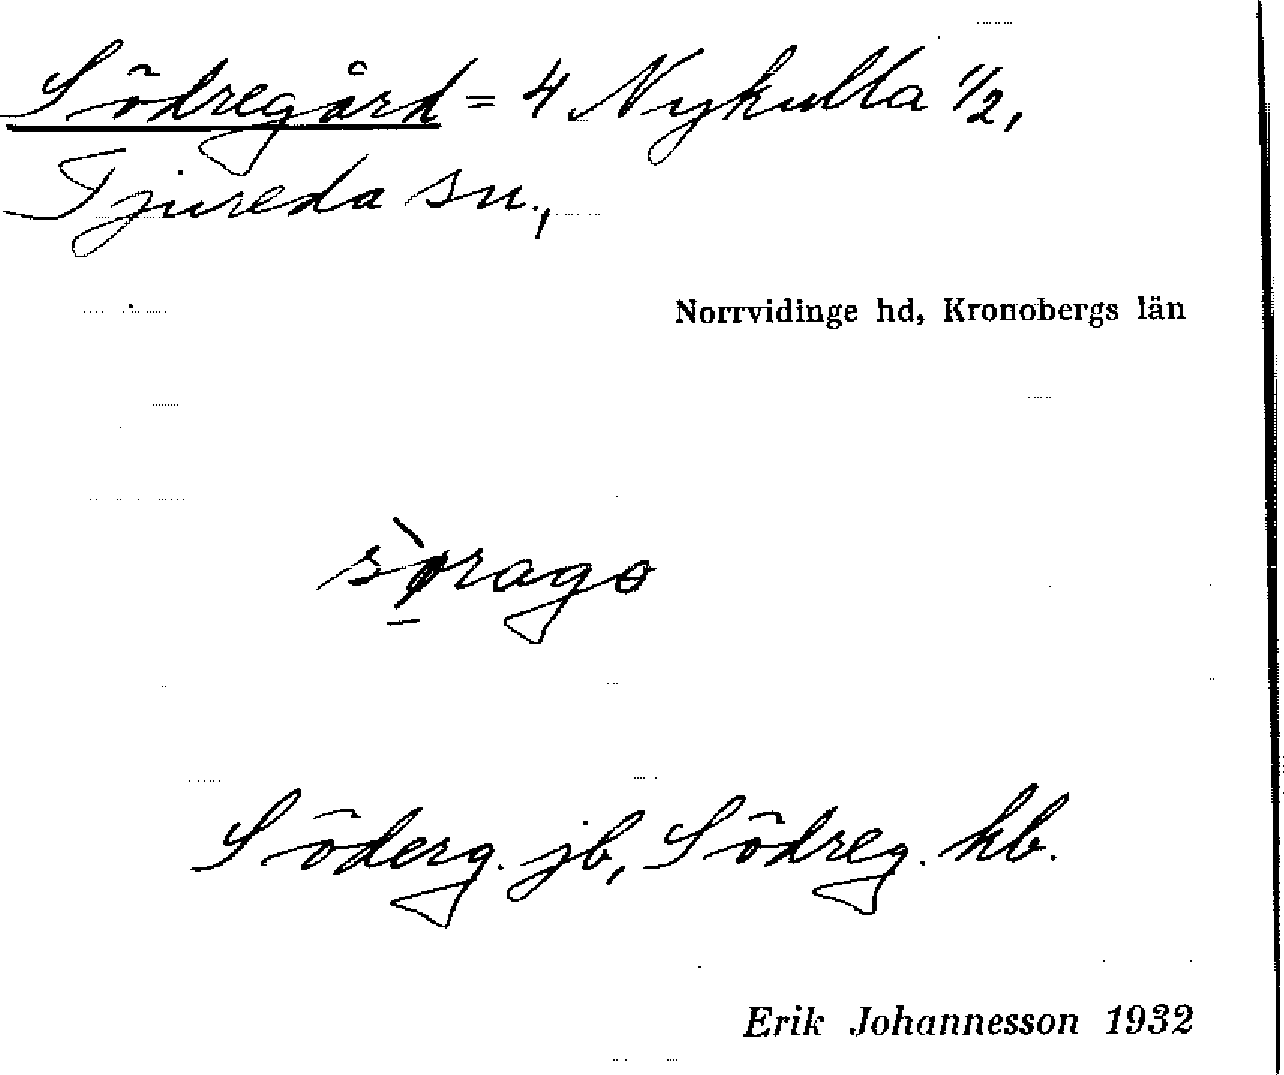 Södregård = 4 Nykulla 1/2,
Tjureda sn.,
Norrvidinge hd, Kronobergs län
sø̠̀rago
Söderg. jb, Södreg. kb.
Erik Johannesson 1932